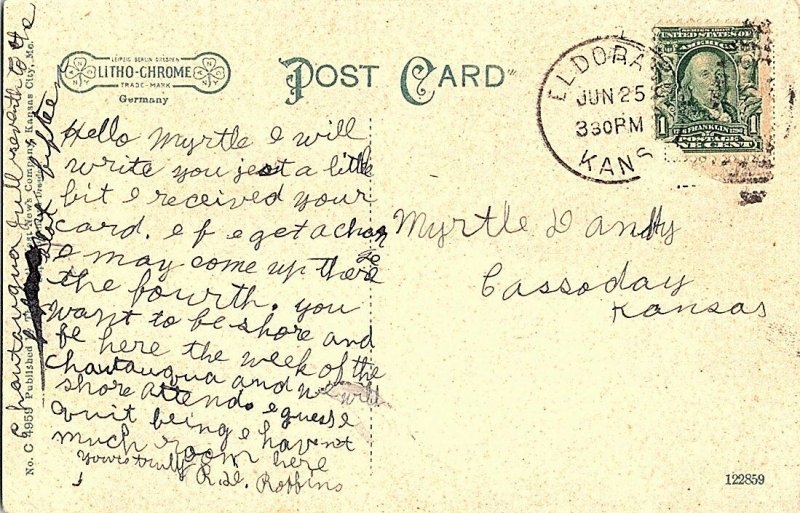 LEIPZIG BERLIN DRESDEN
LITHO-CHROME
TRADE-MARK
Germany
POST CARD
ELDORA
JUN 25
330PM
KANS
SERIES 1902
UNITED STATES OF
AMERICA
1 FRANKLIN 1
POSTAGE
ONE CENT
Hello Myrtle I will
write you jest a little
bit I received your
card. ef e get a chan
ce
I may come up there
the fourth. you
want to be shore and
be here the week of the
chautauqua and we will
shore attend. e guess e
quit being e havent
much room here
yours truly
R.H. Robbins
chautauqua Jull seventh to the
fifteen
Myrtle Dandy
Cassoday
Kansas
No. C 4959 Published
News Company, Kansas City, Mo.
122859